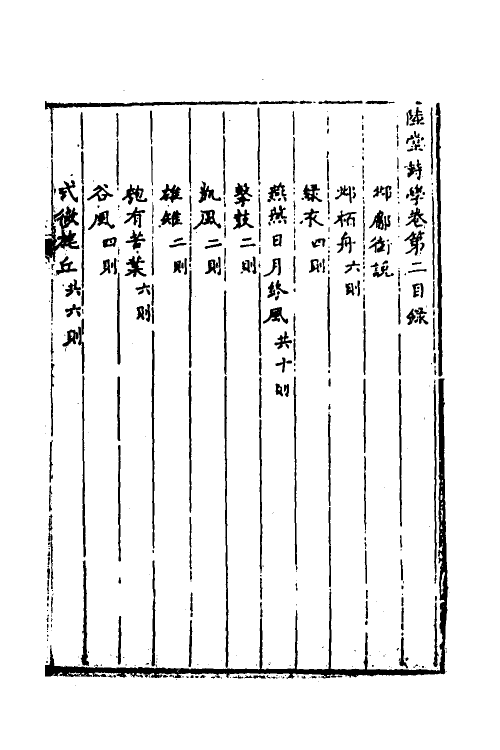 陸堂詩學卷第二目錄
邶鄘衛說
邶柏舟六則
綠衣四則
燕燕日月終風共十則
擊鼓二則
凱風二則
雄雉二則
匏有苦葉六則
谷風四則
式微旄丘共六則